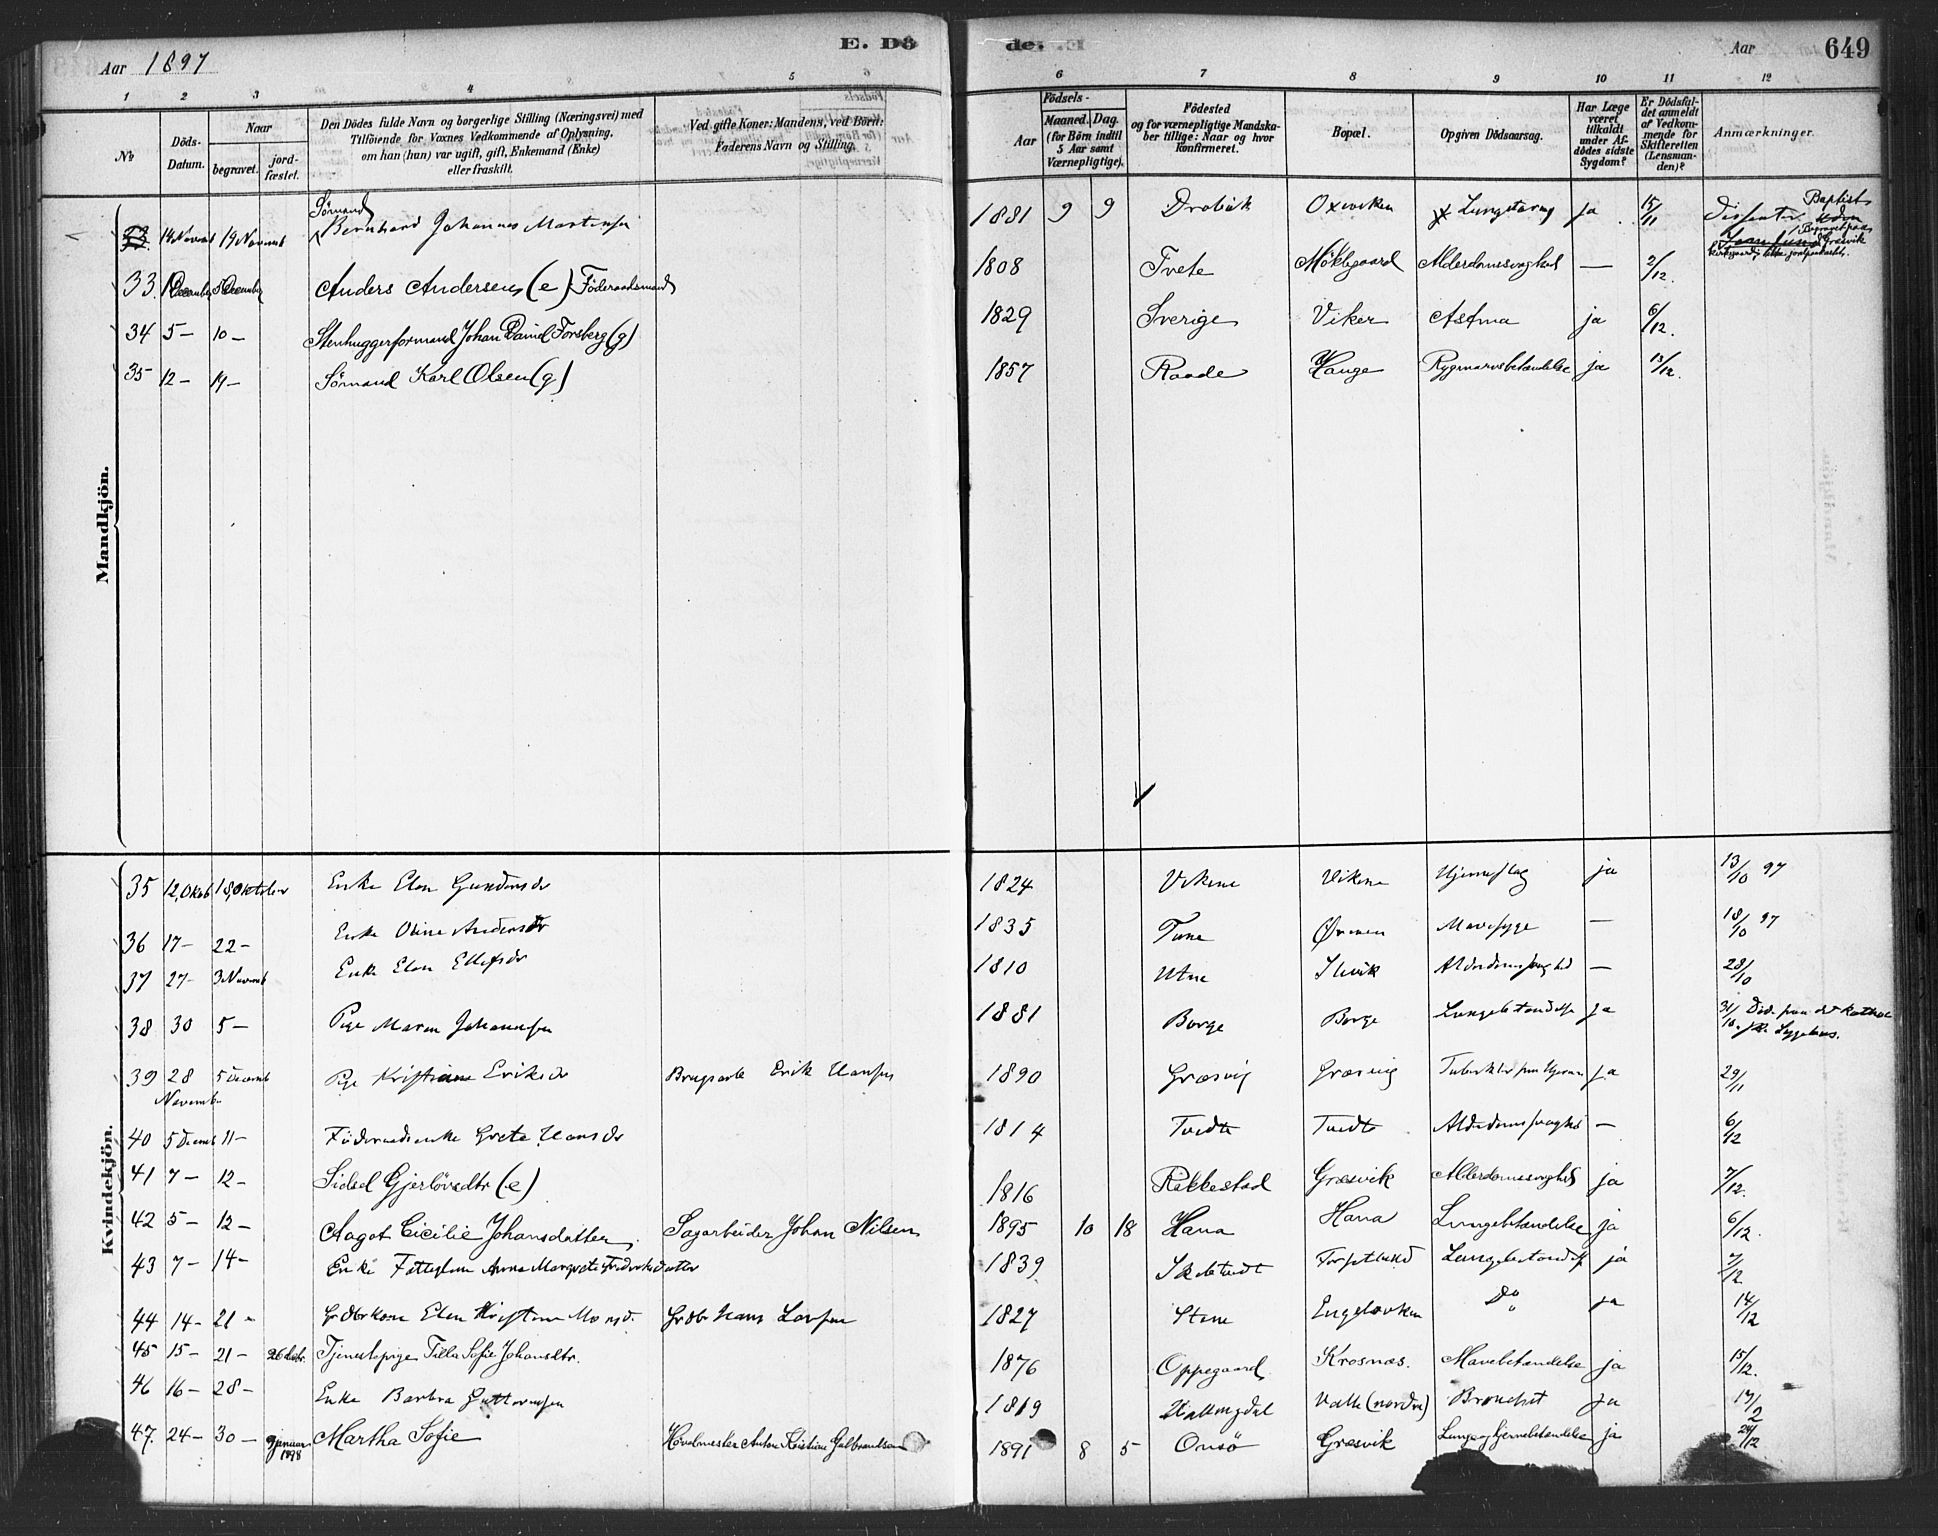 Aar 1897
E. Dö
de.
Aar
649
1 2 3 4 5 6 7 8 9 10 11 12
No
Döds-Datum.
Naar
begravet.
jord-fæstet.
Den Dödes fulde Navn og borgerlige Stilling (Næringsvei) med
Tilföiende for Voxnes Vedkommende af Oplysning,
om han (hun) var ugift, gift, Enkemand (Enke)
eller fraskilt.
Ved gifte Koner: Mandens, ved Börn:
Faderens Navn og Stilling.
Födsels-
Aar
Maaned. Dag.
(for Börn indtil
5 Aar samt
Værnepligtige).
Födested
og for værnepligtige Mandska-
ber tillige: Naar og hvor
konfirmeret.
Bopæl.
Opgiven Dödsaarsag.
Har Læge
været
tilkaldt
under Af-
dödes sidste
Sygdom?
Er Dödsfal-
det anmeldt
af Vedkom-
mende for
Skifteretten
(Lensman-
den)?
Anmærkninger.
Mandkjön.
Sömand
14 Novemb 19 Novemb Bernhard Johannes Martinsen 1881 9 9 Drøbak Oxeviken Lungetæring ja 15/11 Dissenter Baptist
Begravet paa
Græsvik
Kirkegaard, ikke jordpaakastet.
33. 1 December 8 December Anders Andersen (e) Föderaadsmand 1808 Tvete Møklegaard Alderdomssvaghed — 2/12.
34 5 — 10 — Stenhuggerformand Johan Daniel Forsberg (g) 1829 Sverige Viker Astma ja 6/12.
35 12 — 19 — Sömand Karl Olsen (g) 1857 Raade Hauge Rygmarvsbetændelse ja 13/12.
Kvindekjön.
35 12, Oktob 18, Oktober Enke Elen Gundersdr 1824 Vikene Vikene Hjerneslag ja 13/10 97
36 17 — 22 — Enke Oline Andersdr 1835 Tune Mavesyge — 18/10 97
37 27 — 3 Novemb Enke Elen Ellefsdr 1810 Utne Slevik Alderdomssvaghed — 28/10
38 30 5 — Pige Maren Johannsen 1881 Borge Borge Lungebetændelse ja 31/10. Död paa det katholske Sygehus.
39 28 Novemb 5 Decemb Pige Kristiane Eriksdr Brugsarb Erik Hansen 1890 Græsvig Græsvig Tuberkler paa Hjernen ja 29/11
40 5 Decemb 11 — Föderaadsenke Grete Hansdr 1814 Tvedte Tvedte Alderdomssvaghed — 6/12
41 7 — 12 — Sidsel Gjerlövsdtr (e) 1816 Rakkestad Græsvik Alderdomssvaghed ja 7/12.
42 5 — 12 — Aagot Cicilie Johansdatter Sagarbeider Johan Nilsen 1895 10 18 Hana Hana Lungebetændelse ja 6/12.
43 7 — 14 — Enke Fattiglem Anna Margrete Frederiksdatter 1839 Skebtvedt Torpelund Lungebetændelse ja 7/12
44 14 — 21 — Grdbrkone Elen Kristine Monsd. Grdbr Hans Larsen 1827 Stene Engelsviken Do ja 14/12
45 15 — 21 — 26 dectr. Tjenestepige Tilla Sofie Johansdtr. 1876 Oppegaard Krosnæs. Mavebetændelse ja 15/12.
46 16 — 28 — Enke Barbra Guttormsen 1819 Hallingdal Valle (nordre) Bronchit ja 17/2
47. 24 — 30 — 9 januar 1898 Martha Sofie Hovelmester Anton Kristian Gulbrandsen 1891 8 5 Onsö Græsvik Lunge og Hjernebetændelse ja 24/12